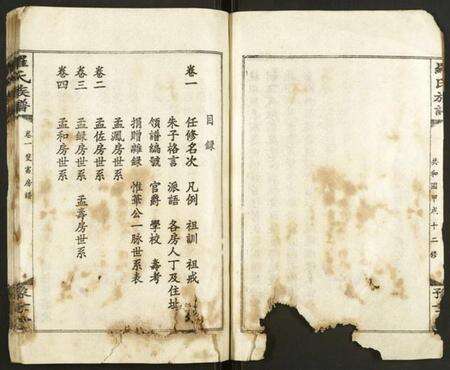 羅氏族譜
共和國甲戌十二修
目錄
卷一 任修名次 凡例 祖訓 祖戒
朱子格言 派語 各房人丁及住址
領譜編號 官爵 學校 壽考
捐贈雜錄 惟華公一脉世系表
孟鳳房世系
卷二 孟佐房世系
卷三 孟錄房世系 孟壽房世系
卷四 孟和房世系
羅氏族譜
卷一 房譜